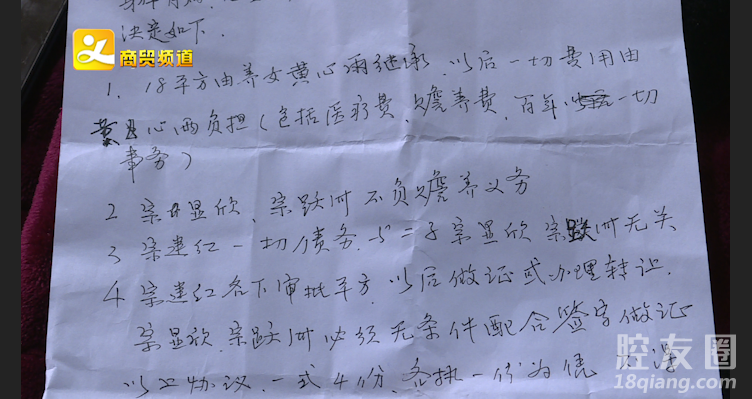 决定如下.
商贸频道
1. 18平方由养女黄心雨继承.以后一切费用由
黄心雨负担(包括医疗费、赡养费、百年以后一切
事务)
2 宗显欣、宗跃州不负赡养义务
3 宗建红一切债务.与二子宗显欣宗跃州无关
4 宗建红名下审批平方.以后做证或办理转让.
宗显欣.宗跃州必须无条件配合签字做证
以上协议.一式4份.各执一份为凭
腔友圈
18qiang.com